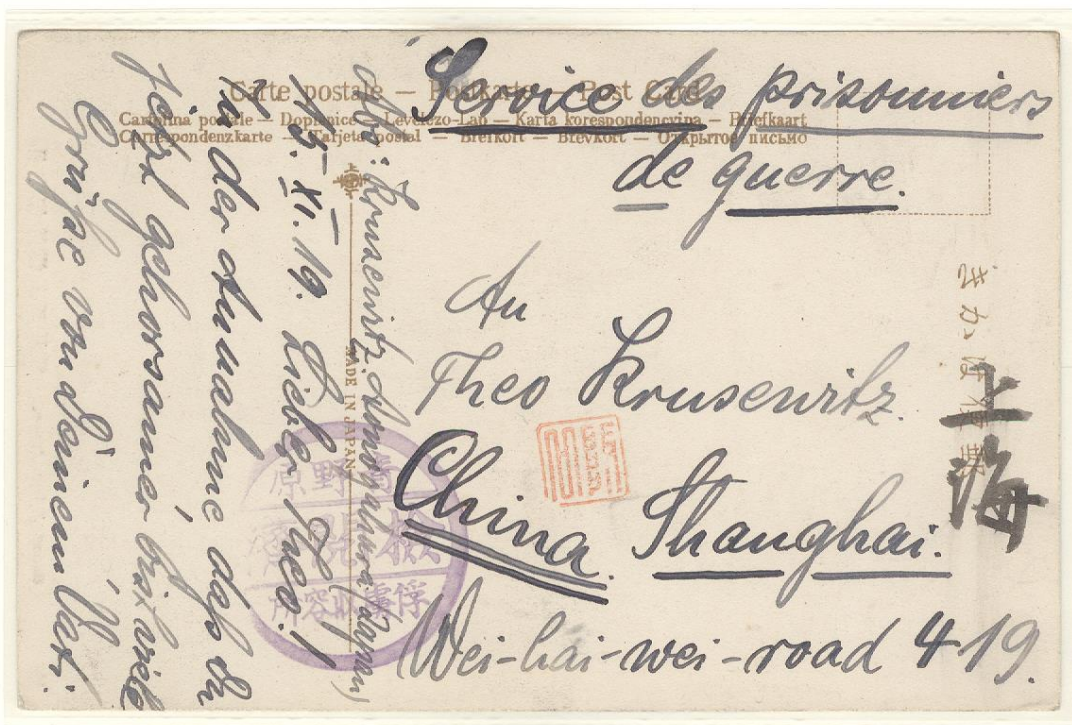 Carte postale — Postkarte — Post Card
Cartolina postale — Dopisnice — Levelezo-Lap — Karta korespondencyjna — Briefkaart
Correspondenzkarte — Tarjeta postal — Brefkort — Brevkort — Открытое письмо
Service des prisonniers
de guerre.
An
Theo Krusewitz.
China. Shanghai.
Wei-hai-wei-road 419.
上海
郵便はかき
MADE IN JAPAN
原野青
濟閲檢
所容収虜俘
Abs: Krusewitz Aonogahara (Japan)
15. XI. 19. Lieber Theo!
In der Annahme daß du
jetzt gehorsamer bist viele
Grüße von Deinem Vati.